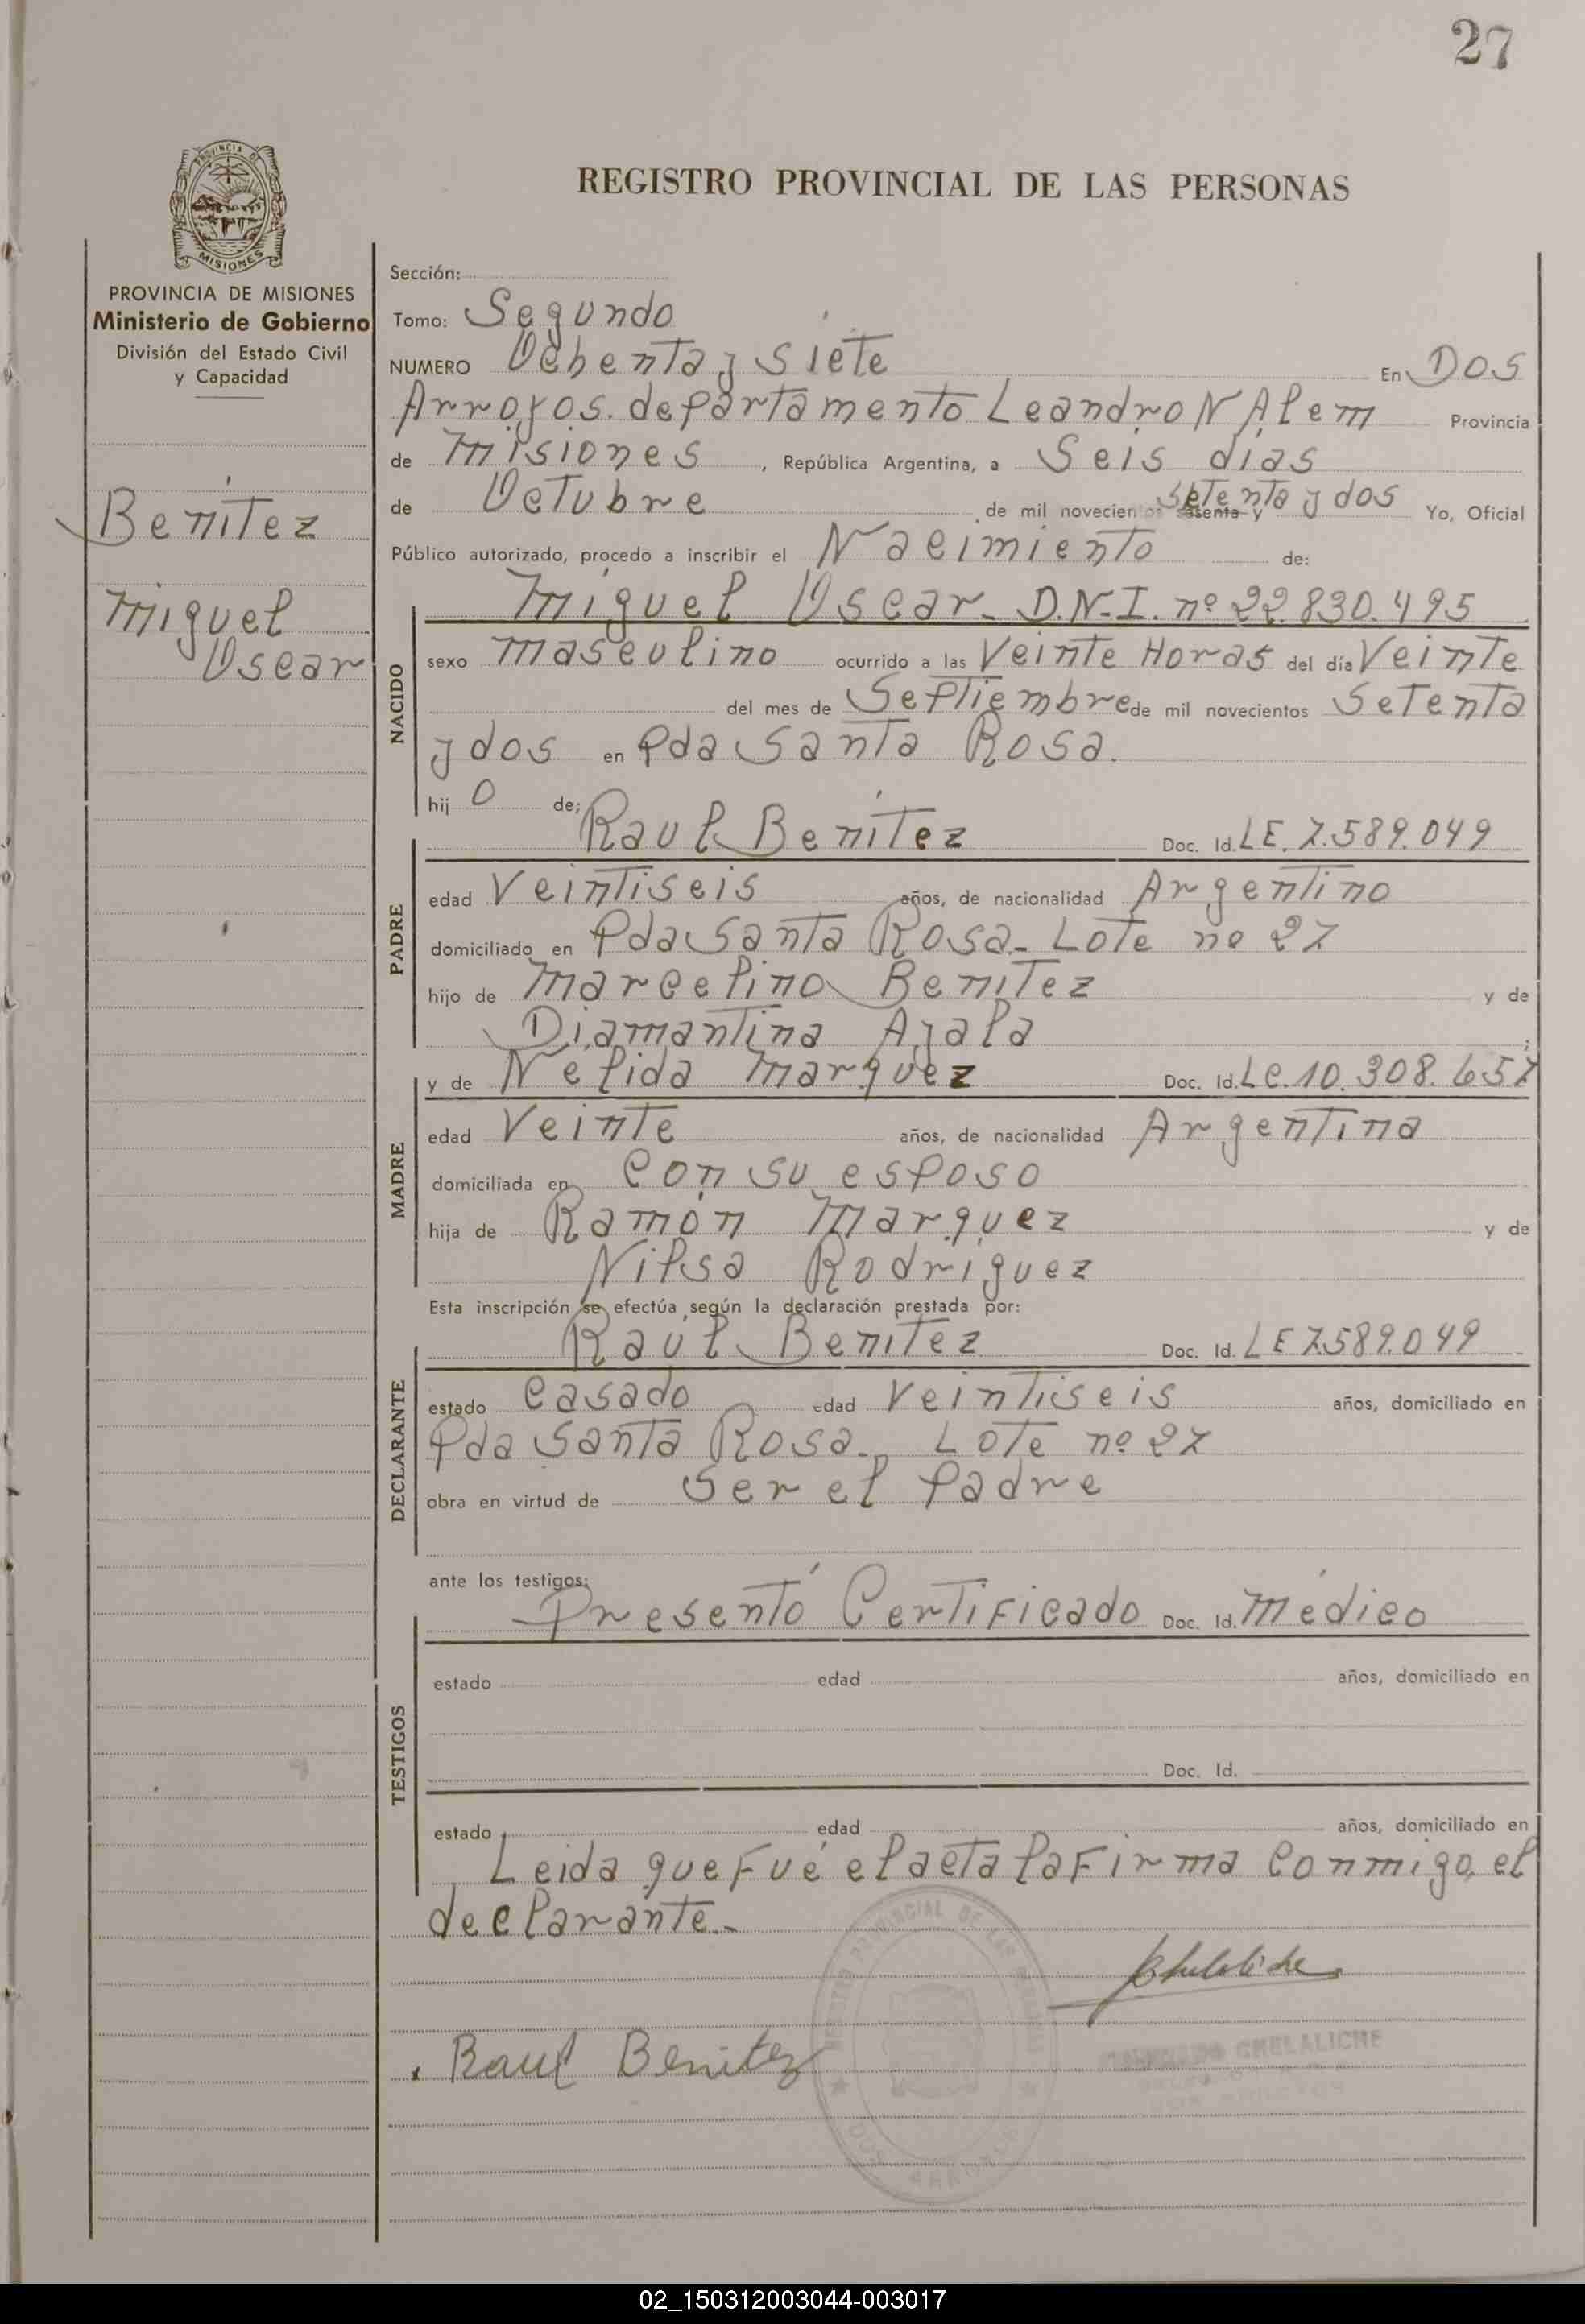 27
PROVINCIA DE
MISIONES
REGISTRO PROVINCIAL DE LAS PERSONAS
PROVINCIA DE MISIONES
Ministerio de Gobierno
División del Estado Civil
y Capacidad
Benítez
Miguel
Oscar
Sección:
Tomo: Segundo
NUMERO Ochenta y siete En Dos
Arroyos. departamento Leandro N Alem Provincia
de Misiones, República Argentina, a Seis dias
de Octubre de mil novecientos sesenta y setenta y dos Yo, Oficial
Público autorizado, procedo a inscribir el Nacimiento de:
NACIDO
Miguel Oscar - D.N.I. nº 22.830.495
sexo masculino ocurrido a las Veinte Horas del día Veinte
del mes de Septiembre de mil novecientos Setenta
y dos en Pda Santa Rosa.
hij o de:
PADRE
Raul Benítez Doc. Id. LE. 7.589.049
edad Veintiseis años, de nacionalidad Argentino
domiciliado en Pda Santa Rosa - Lote no 27
hijo de Marcelino Benitez y de
Diamantina Ayala ;
MADRE
y de Nélida Marquez Doc. Id. LC. 10.308.657
edad Veinte años, de nacionalidad Argentina
domiciliada en con su esposo
hija de Ramón Marquez y de
Nilsa Rodríguez
Esta inscripción se efectúa según la declaración prestada por:
DECLARANTE
Raúl Benitez Doc. Id. LE 7.589.049
estado casado edad Veintiseis años, domiciliado en
Pda Santa Rosa. Lote nº 27
obra en virtud de Ser el padre
ante los testigos:
TESTIGOS
Presentó Certificado Doc. Id. Médico
estado edad años, domiciliado en
Doc. Id.
estado edad años, domiciliado en
Leida que Fué el acta la Firma conmigo, el
declarante.-
Raul Benitez
CHELALICHE
02_150312003044-003017